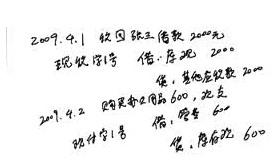 2009.4.1 收回张三借款2000元
现收字1号 借:库现 2000
贷:其他应收款2000
2009.4.2 购买办公用品600,现支
现付字1号 借:管费 600
贷:库存现 600